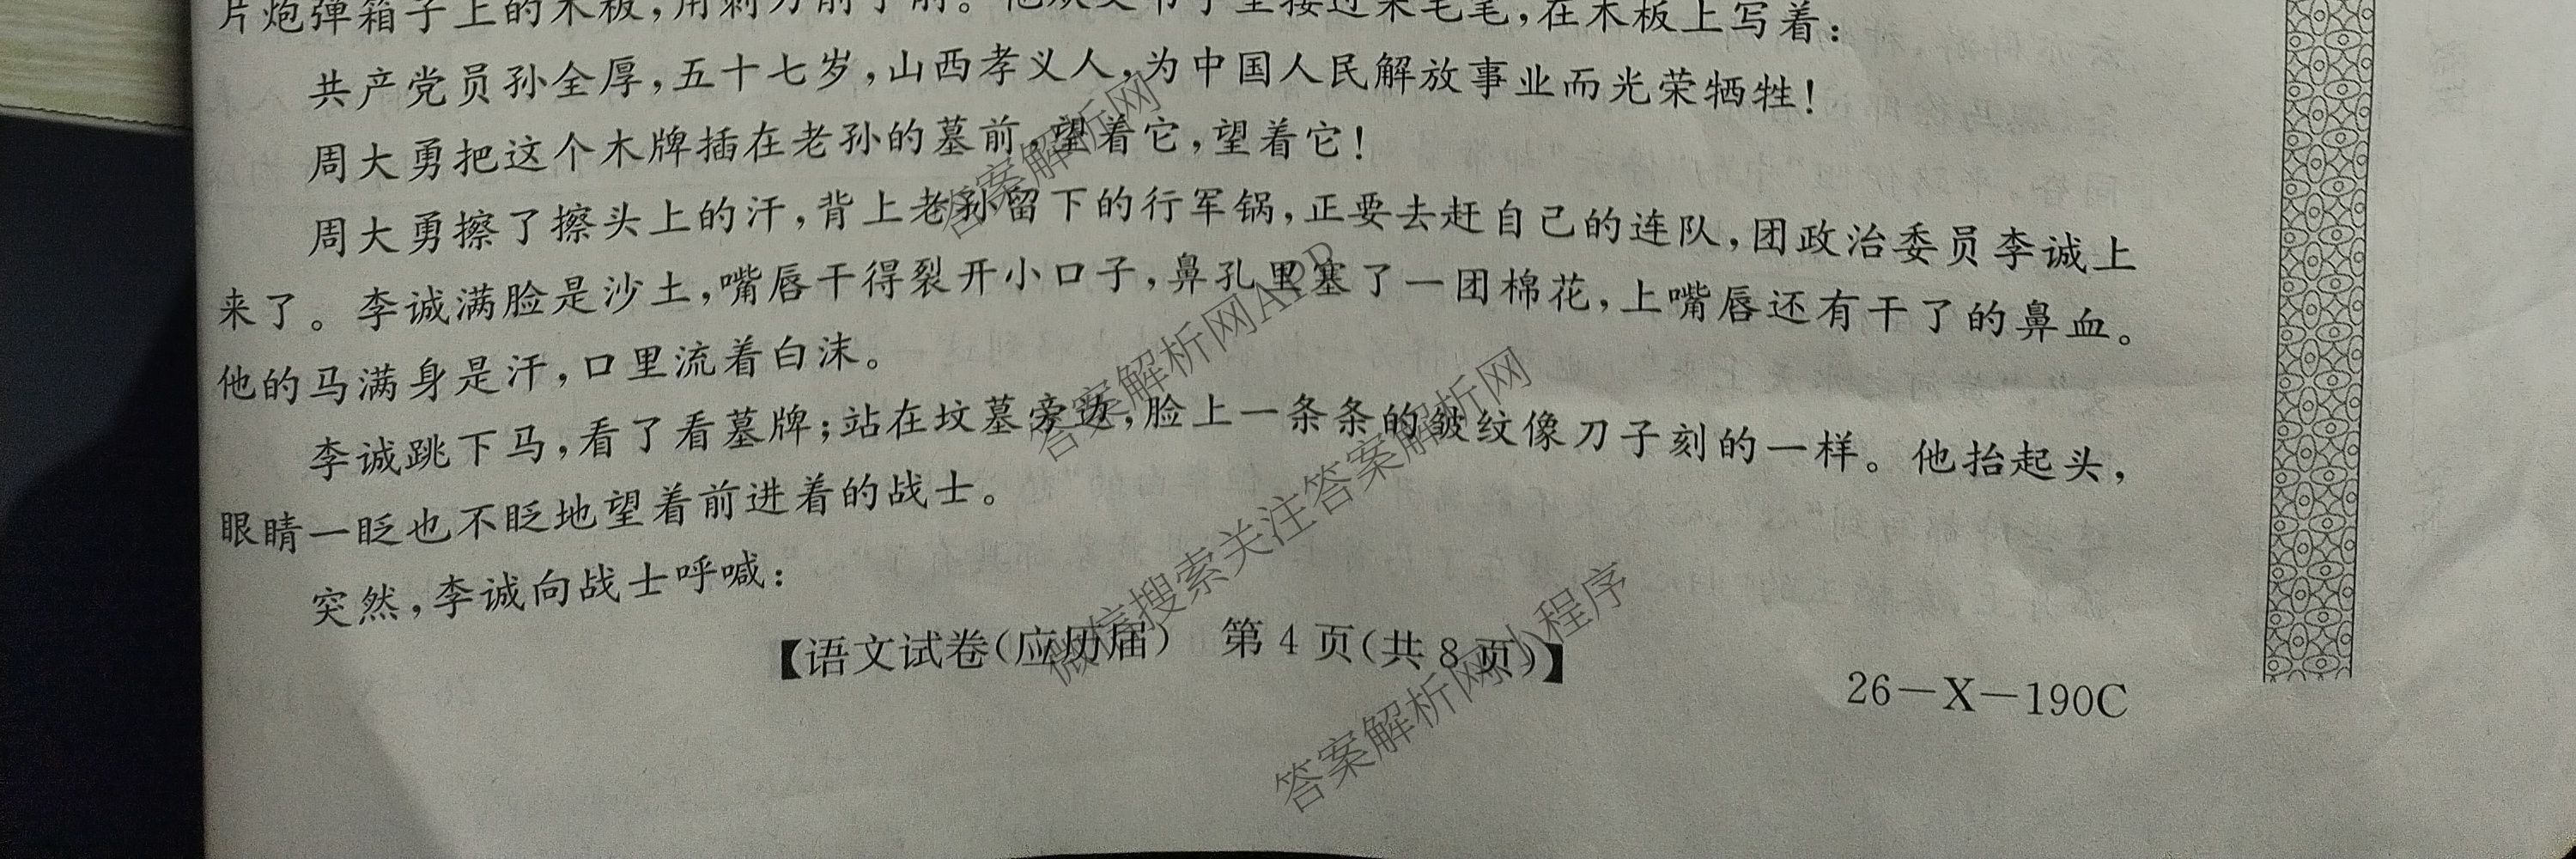 片炮弹箱子上的木板，用刺刀削了削。他从文书手里接过来毛笔，在木板上写着：
共产党员孙全厚，五十七岁，山西孝义人，为中国人民解放事业而光荣牺牲！
周大勇把这个木牌插在老孙的墓前，望着它，望着它！
周大勇擦了擦头上的汗，背上老孙留下的行军锅，正要去赶自己的连队，团政治委员李诚上
来了。李诚满脸是沙土，嘴唇干得裂开小口子，鼻孔里塞了一团棉花，上嘴唇还有干了的鼻血。
他的马满身是汗，口里流着白沫。
李诚跳下马，看了看墓牌；站在坟墓旁边，脸上一条条的皱纹像刀子刻的一样。他抬起头，
眼睛一眨也不眨地望着前进着的战士。
突然，李诚向战士呼喊：
【语文试卷（应历届） 第 4 页（共 8 页）】
26－X－190C
答案解析网
答案解析网APP
微信搜索关注答案解析网
答案解析网小程序